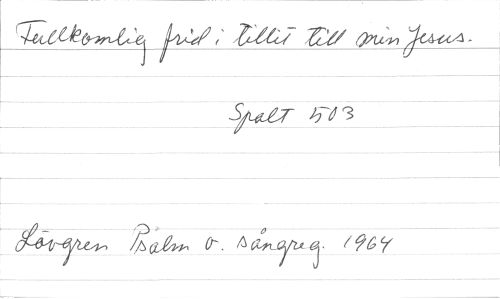 Fullkomlig frid i tillit till min Jesus.
Spalt 503
Lövgren Psalm o. sångreg. 1964